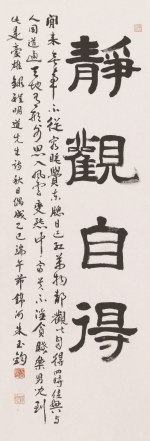 靜觀自得
閒來無事不從容睡覺東窗日已紅萬物靜觀皆自得四時佳興與
人同道通天地有形外思入風雲變態中富貴不淫貧賤樂男兒到
此是豪雄錄程明道先生詩秋日偶成巳端午節錦河朱玉